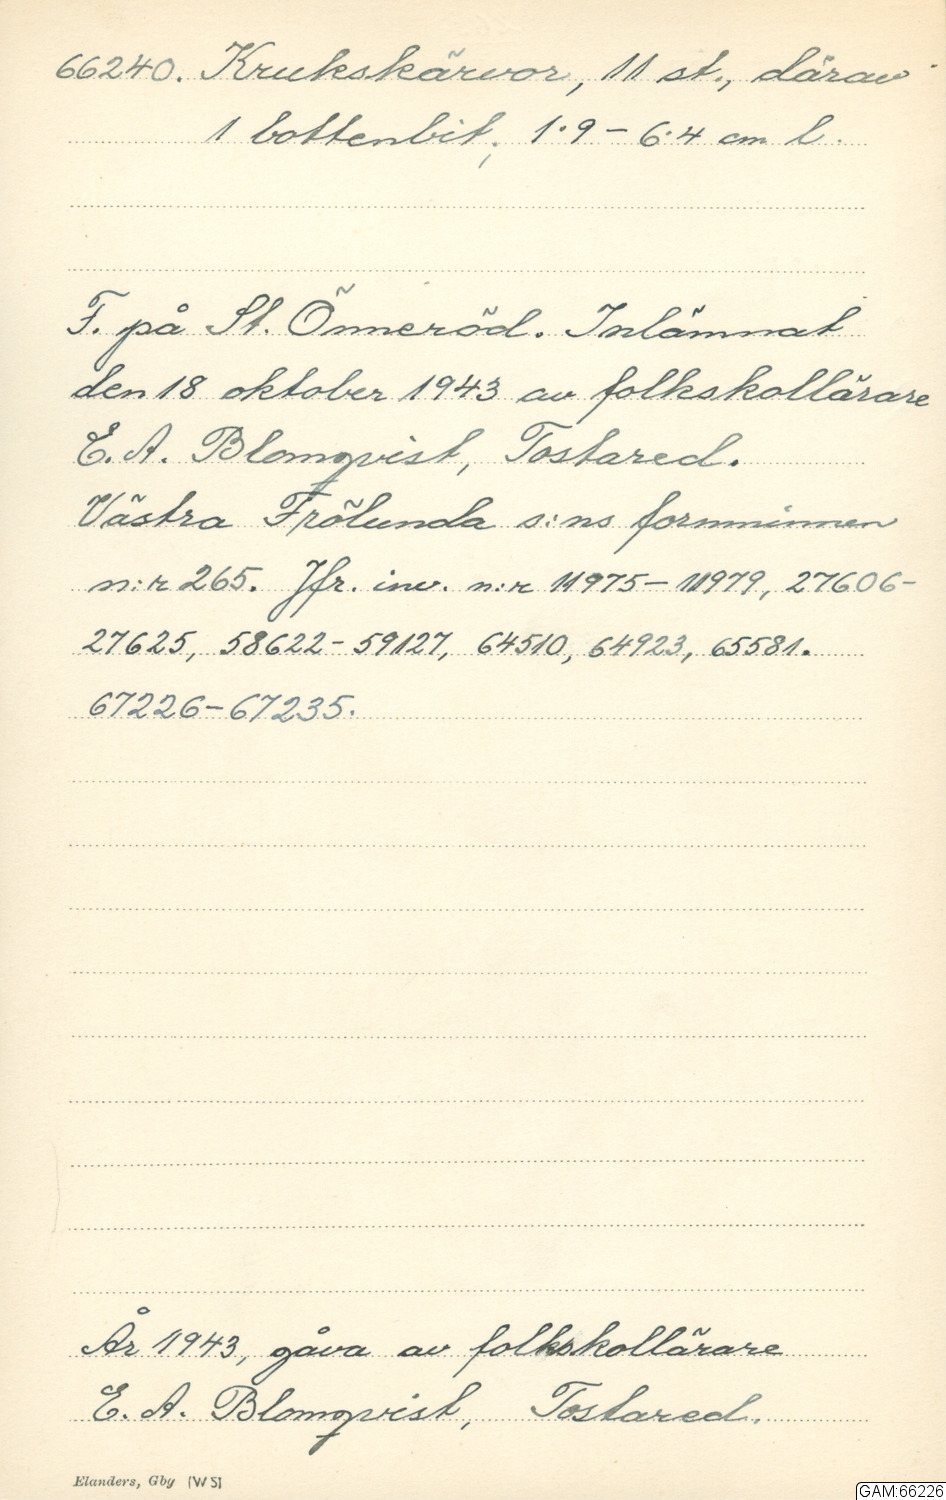 66240. Krukskärvor, 11 st., därav
1 bottenbit, 1·9 – 6·4 cm l.
F. på St. Önneröd. Inlämnat
den 18 oktober 1943 av folkskollärare
E. A. Blomqvist, Tostared.
Västra Frölunda s:ns fornminnen
n:r 265. Jfr. inv. n:r 11975 – 11979, 27606 –
27625, 58622 – 59127, 64510, 64923, 65581.
67226 – 67235.
År 1943, gåva av folkskollärare
E. A. Blomqvist, Tostared.
Elanders, Gbg (W S)
GAM:66226